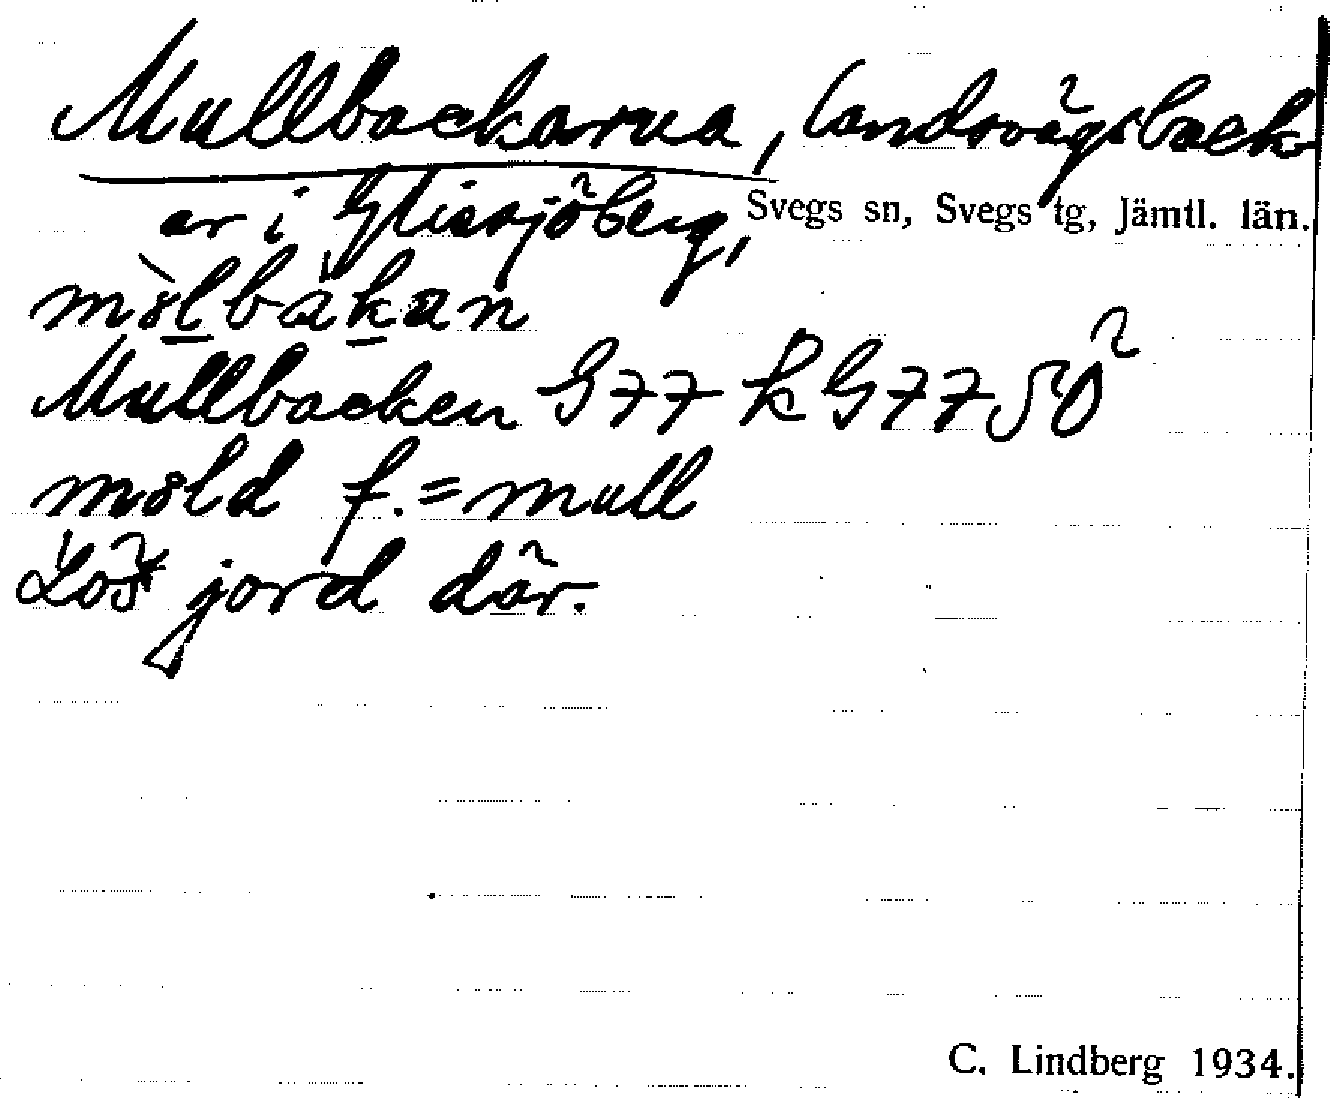 Mullbackarna, landsvägsback-
ar i Glissjöberg, Svegs sn, Svegs tg, Jämtl. län.
mòlbàkan
Mullbacken G77 k G77 SO
mold f. = mull
Lös jord där.
C. Lindberg 1934.